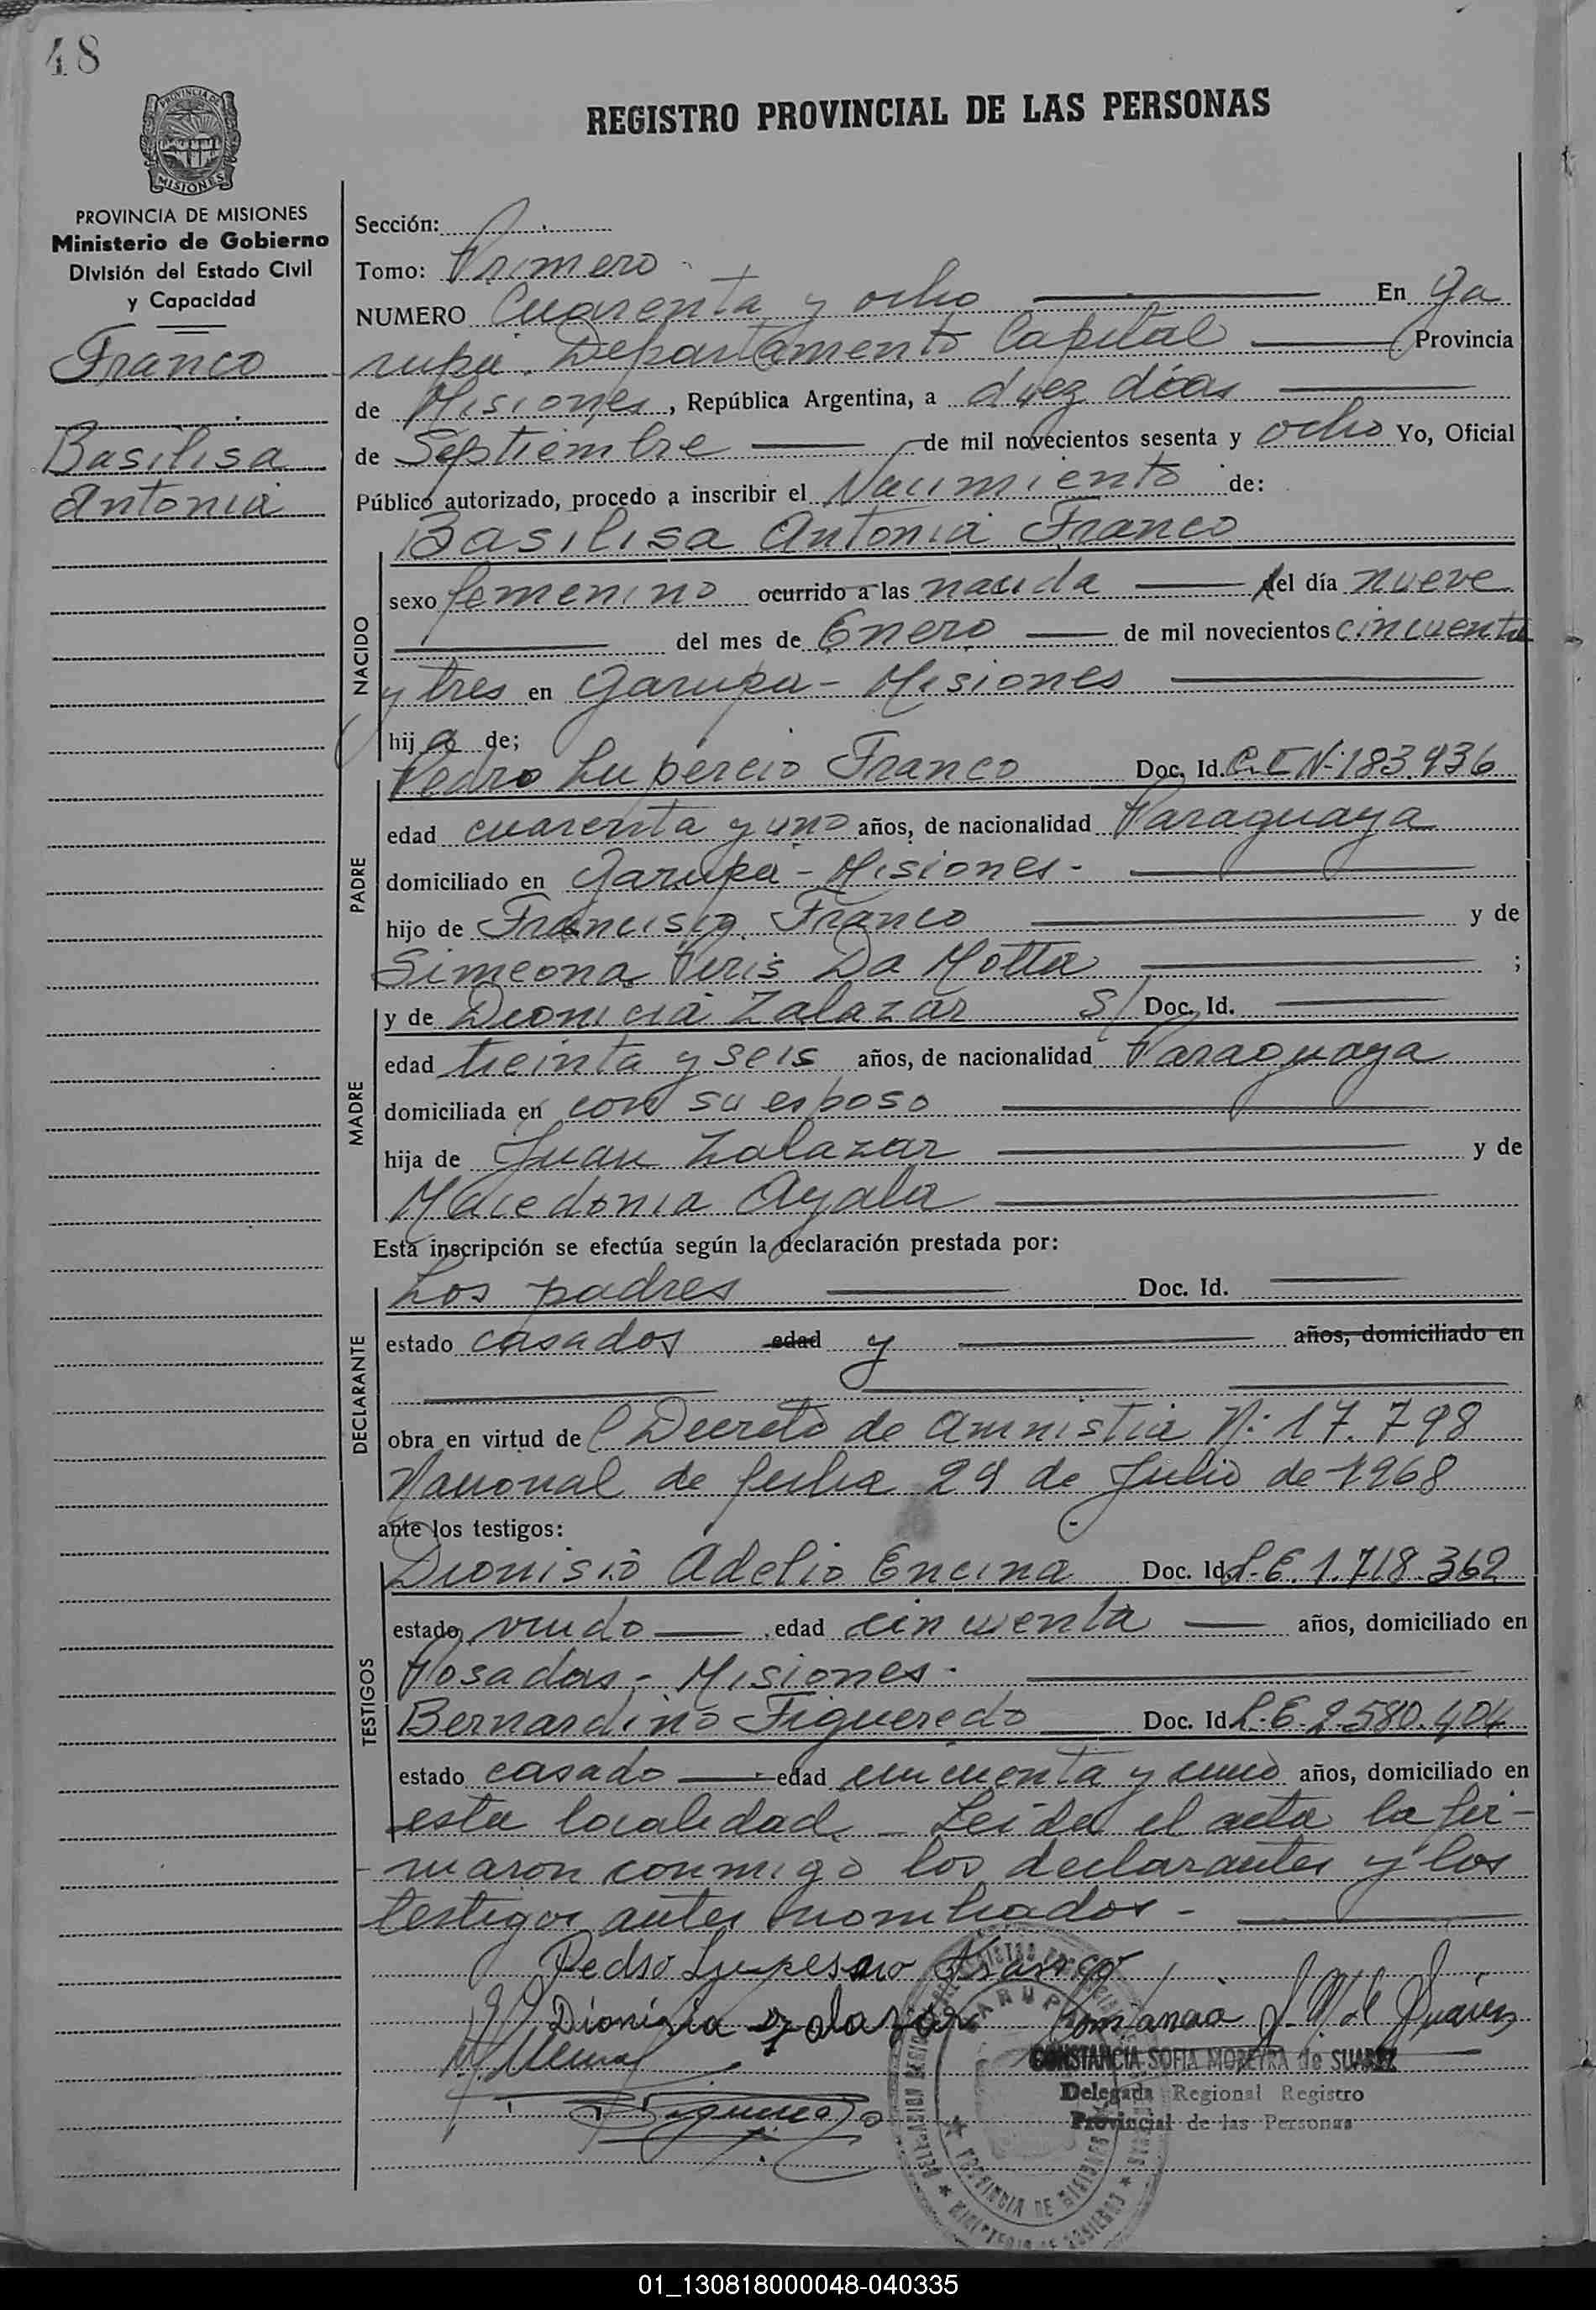 48
PROVINCIA DE
MISIONES
PROVINCIA DE MISIONES
Ministerio de Gobierno
División del Estado Civil
y Capacidad
Franco
Basilisa
Antonia
REGISTRO PROVINCIAL DE LAS PERSONAS
Sección:
Tomo: Primero
NUMERO Cuarenta y ocho En Ga
rupá. Departamento Capital Provincia
de Misiones, República Argentina, a diez días
de Septiembre de mil novecientos sesenta y ocho Yo, Oficial
Público autorizado, procedo a inscribir el Nacimiento de:
Basilisa Antonia Franco
NACIDO
sexo femenino ocurrido a las nacida del día nueve
del mes de Enero de mil novecientos cincuenta
y tres en Garupa - Misiones
hija de;
PADRE
Pedro Lupercio Franco Doc. Id. C.I N: 183.936
edad cuarenta y uno años, de nacionalidad Paraguaya
domiciliado en Garupa - Misiones-
hijo de Franco y de
Simeona Da Motta ;
MADRE
y de Dionicia Zalazar S/ Doc. Id.
edad treinta y seis años, de nacionalidad Paraguaya
domiciliada en con su esposo
hija de Juan Zalazar y de
Macedonia Ayala
Esta inscripción se efectúa según la declaración prestada por:
DECLARANTE
Los padres Doc. Id.
estado casados edad y años, domiciliado en
obra en virtud del Decreto de Amnistia N: 17.798
Nacional de fecha 29 de Julio de 1968
ante los testigos:
TESTIGOS
Dionisio Adelio Encina Doc. Id. L.E. 1.718.362
estado viudo edad cincuenta años, domiciliado en
Posadas - Misiones-
Bernardino Figueredo Doc. Id. L.E-2.580.404
estado casado edad cincuenta y uno años, domiciliado en
esta localidad. - Leida el acta la fir-
maron conmigo los declarantes y los
testigos antes nombrados -
Pedro Franco
Dionisia zalazar Constancia S. M. de Suárez
CONSTANCIA SOFIA MOREYRA de SUAREZ
Delegada Regional Registro
Provincial de las Personas
GARUPA
PROVINCIA DE MISIONES
01_130818000048-040335